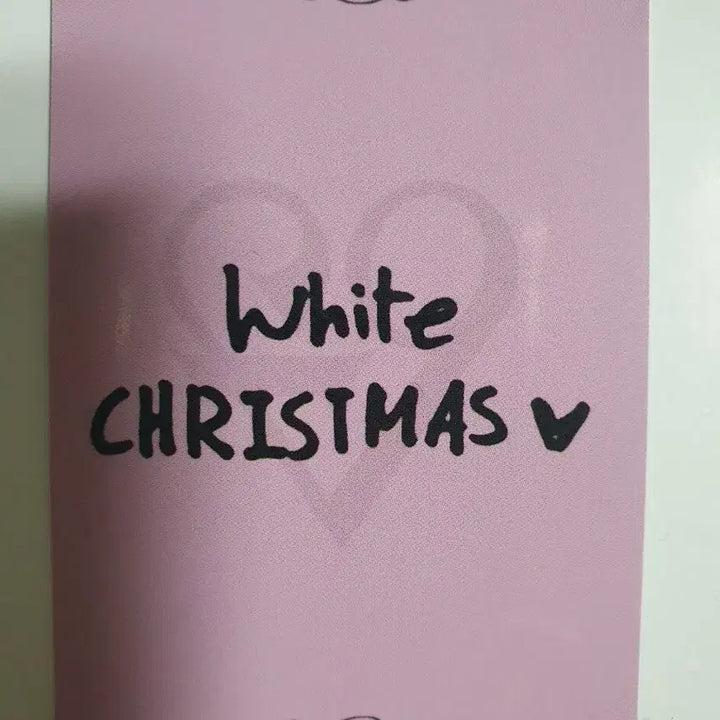 White
CHRISTMAS ♥